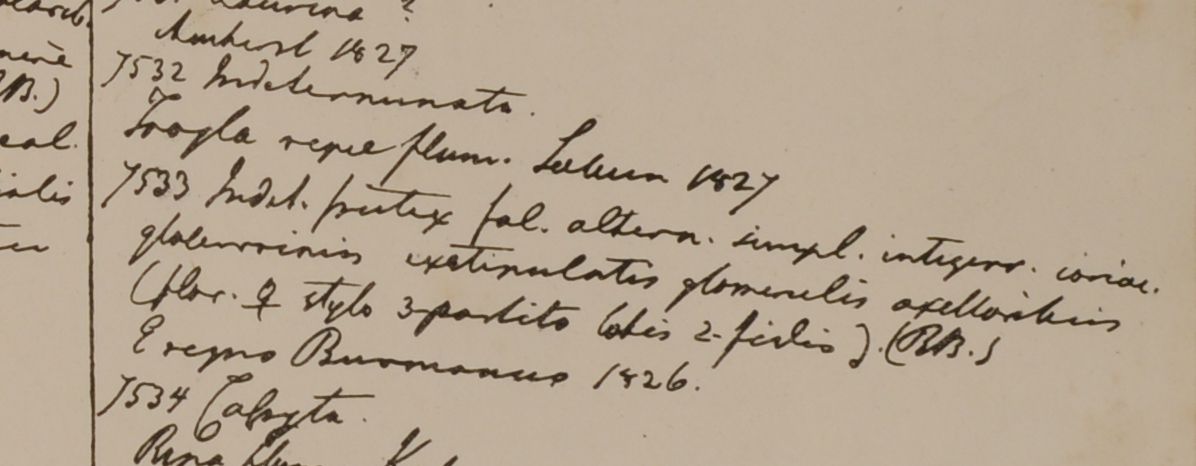 Laurina ?
Amherst 1827
7532 Indeterminata.
Trogla ripae flum. Saluen 1827
7533 Indet. frutex fol. altern. simpl. integerr. coriac.
glaberrimis exstipulatis glomerulis axillaribus
(flor. ♀ stylo 3-partito lobis 2-fidis). (RB.)
E regno Burmanico 1826.
7534
Ripa flum.
B.)